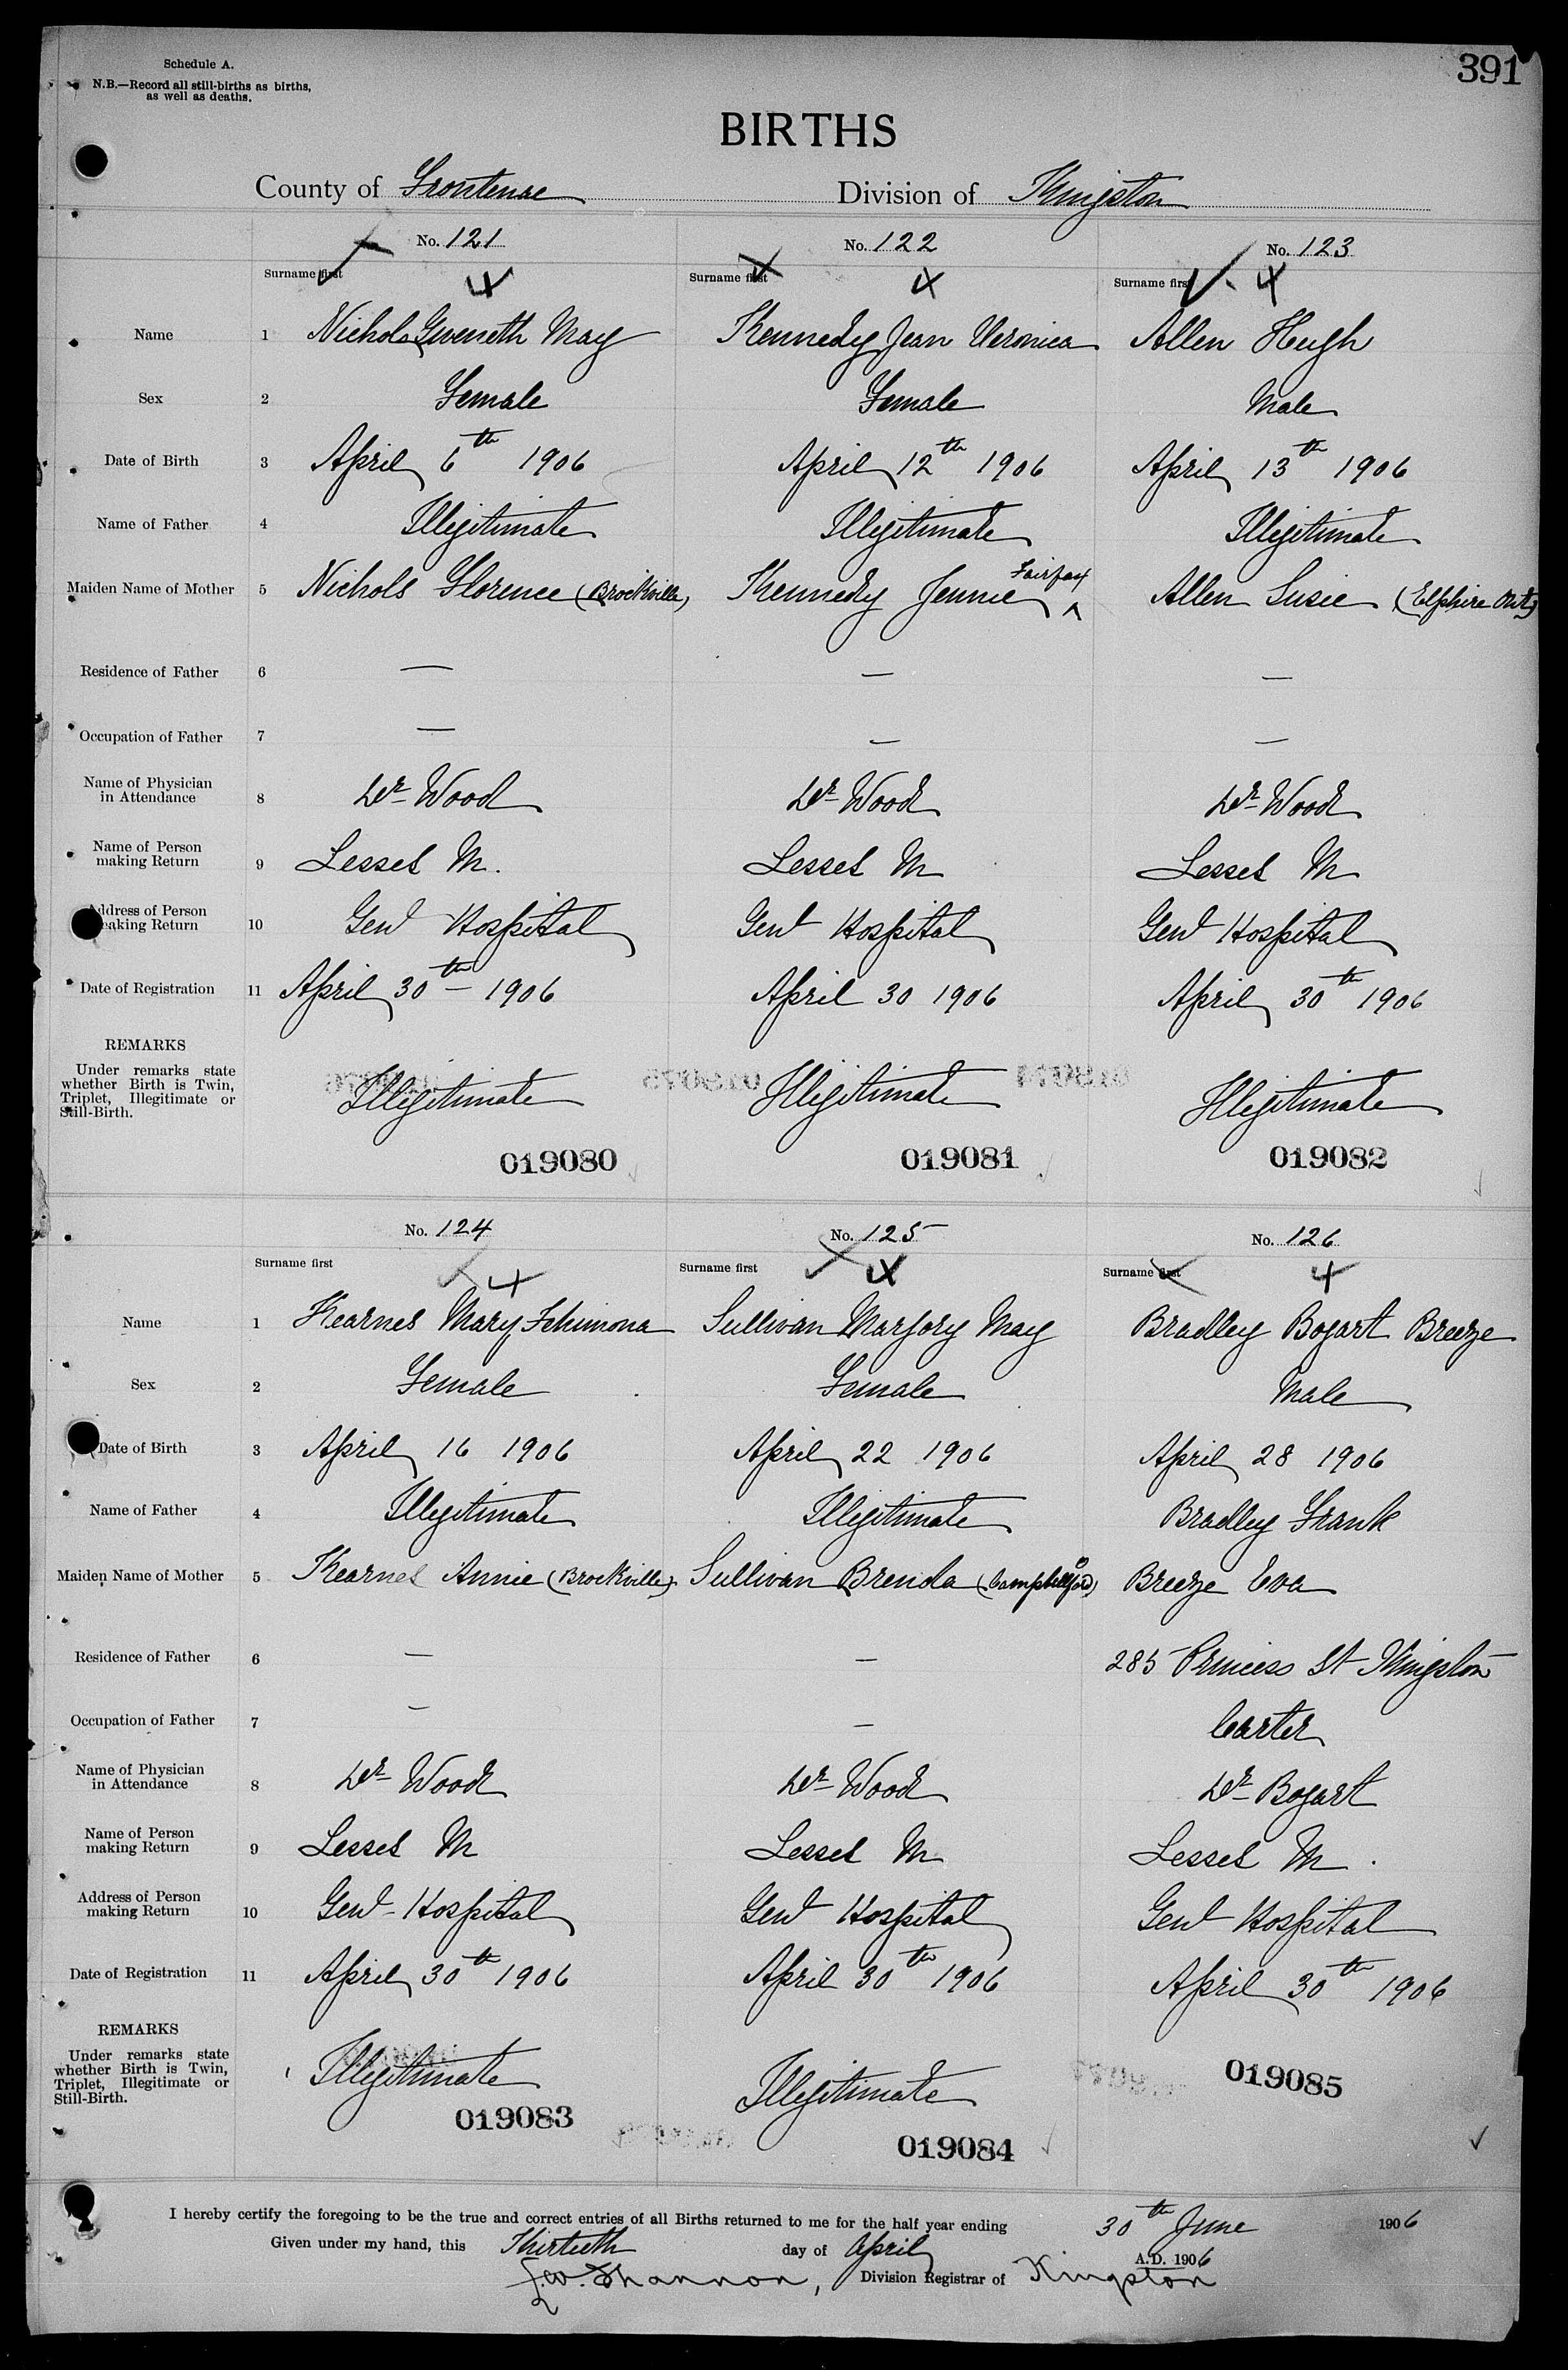 Schedule A.
N.B.—Record all still-births as births,
as well as deaths.
391
BIRTHS
County of Frontenac Division of Kingston
No. 121 No. 122 No. 123
Surname first Surname first Surname first
4 4 4
Name 1 Nichols Gweneth May Kennedy Jean Veronica Allen Hugh
Sex 2 Female Female Male
Date of Birth 3 April 6th 1906 April 12th 1906 April 13th 1906
Name of Father 4 Illegitimate Illegitimate Illegitimate
Maiden Name of Mother 5 Nichols Florence (Brockville) Kennedy Jennie Fairfax Allen Susie (Elphire Ont)
Residence of Father 6 — — —
Occupation of Father 7 — — —
Name of Physician
in Attendance 8 Dr Wood Dr Wood Dr Wood
Name of Person
making Return 9 Lessel M. Lessel M Lessel M
Address of Person
making Return 10 Genl Hospital Genl Hospital Genl Hospital
Date of Registration 11 April 30th 1906 April 30 1906 April 30th 1906
REMARKS
Under remarks state
whether Birth is Twin,
Triplet, Illegitimate or
Still-Birth.
Illegitimate Illegitimate Illegitimate
019080 019081 019082
No. 124 No. 125 No. 126
Surname first Surname first Surname first
4 4 4
Name 1 Kearnes Mary Sullivan Marjory May Bradley Bogart Breeze
Sex 2 Female Female Male
Date of Birth 3 April 16 1906 April 22 1906 April 28 1906
Name of Father 4 Illegitimate Illegitimate Bradley Frank
Maiden Name of Mother 5 Kearnes Annie (Brockville) Sullivan Brenda (Campbellford) Breeze Eva
Residence of Father 6 — — 285 Princess St Kingston
Occupation of Father 7 — — Carter
Name of Physician
in Attendance 8 Dr Wood Dr Wood Dr Bogart
Name of Person
making Return 9 Lessel M Lessel M Lessel M.
Address of Person
making Return 10 Genl Hospital Genl Hospital Genl Hospital
Date of Registration 11 April 30th 1906 April 30th 1906 April 30th 1906
REMARKS
Under remarks state
whether Birth is Twin,
Triplet, Illegitimate or
Still-Birth.
Illegitimate Illegitimate
019083 019084 019085
I hereby certify the foregoing to be the true and correct entries of all Births returned to me for the half year ending 30th June 1906
Given under my hand, this Thirtieth day of April A.D. 1906
Shannon, Division Registrar of Kingston